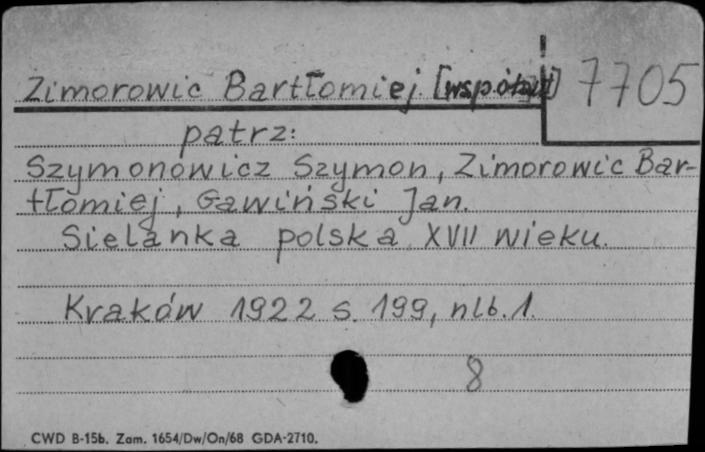 Zimorowic Bartłomiej [współaut]
7705
patrz:
Szymonowicz Szymon, Zimorowic Bar-
tłomiej, Gawiński Jan.
Sielanka polska XVII wieku.
Kraków 1922 s. 199, nlb. 1.
8
CWD B-15b. Zam. 1654/Dw/On/68 GDA-2710.